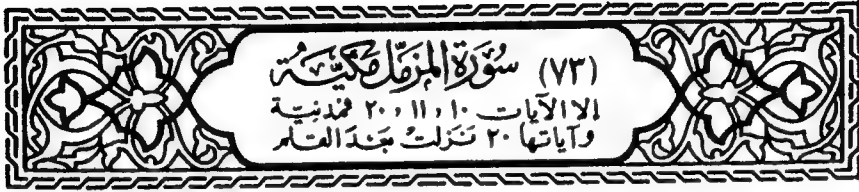 (٧٣) سُورَة المزمّل مَكيّة
إلا الآيات ١٠ و ١١ و ٢٠ فمدنية
وآياتها ٢٠ نَزلتْ بَعدَ القلم